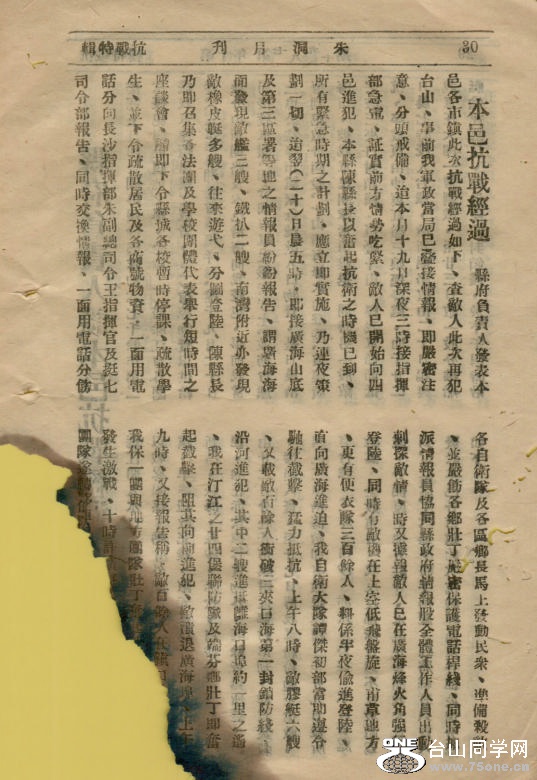 30
朱洞月刊
抗戰特輯
本邑抗戰經過
縣府負責人發表本
邑各市鎮此次抗戰經過如下、查敵人此次再犯
台山、事前我軍政當局已叠接情報、即嚴密注
意、分頭戒備、迨本月十九日深夜三時接指揮
部急電、証實前方情勢吃緊、敵人已開始向四
邑進犯、本縣陳縣長以奮起抗衛之時機已到、
所有緊急時期之計劃、應立即實施、乃連夜策
劃一切、迨翌(二十)日晨五時、即接廣海山底
及第三區署等地之情報員紛紛報告、謂廣海海
面發現敵艦三艘、鐵扒二艘、南灣附近亦發現
敵橡皮艇多艘、往來遊弋、分圖登陸、陳縣長
乃即召集各法團及學校團體代表舉行短時間之
座談會、隨即下令縣城各校暫時停課、疏散學
生、並下令疏散居民及各商號物資、一面用電
話分向長沙指揮部朱副總司令王指揮官及挺七
司令部報告、同時交換情報、一面用電話分飭
各自衛隊及各區鄉長馬上發動民衆、準備殺敵
、並嚴飭各鄉壯丁嚴密保護電話桿綫、同時加
派情報員協同縣政府情報股全體工作人員出動
刺探敵情、時又據報敵人已在廣海烽火角强行
登陸、同時有敵機在上空低飛盤旋、甫草地方
、更有便衣隊三百餘人、料係半夜偷進登陸、
直向廣海進迫、我自衛大隊譚傑初部當即遵令
馳往截擊、猛力抵抗、上午八時、敵膠艇六艘
、又載敵百餘人衝破三夾口海第一封鎖防綫、
沿河進犯、其中二艘進抵離海口埠約一里之遙
、我在汀江之廿四堡聯防隊及端芬鄉壯丁即奮
起截擊、阻其向前進犯、敵潰退廣海埠、上午
九時、又接報告稱、敵百餘人在
我保一團與地方團隊壯丁奮
發生激戰、十時許
團隊
ONE
台山同学网
www.75one.cn